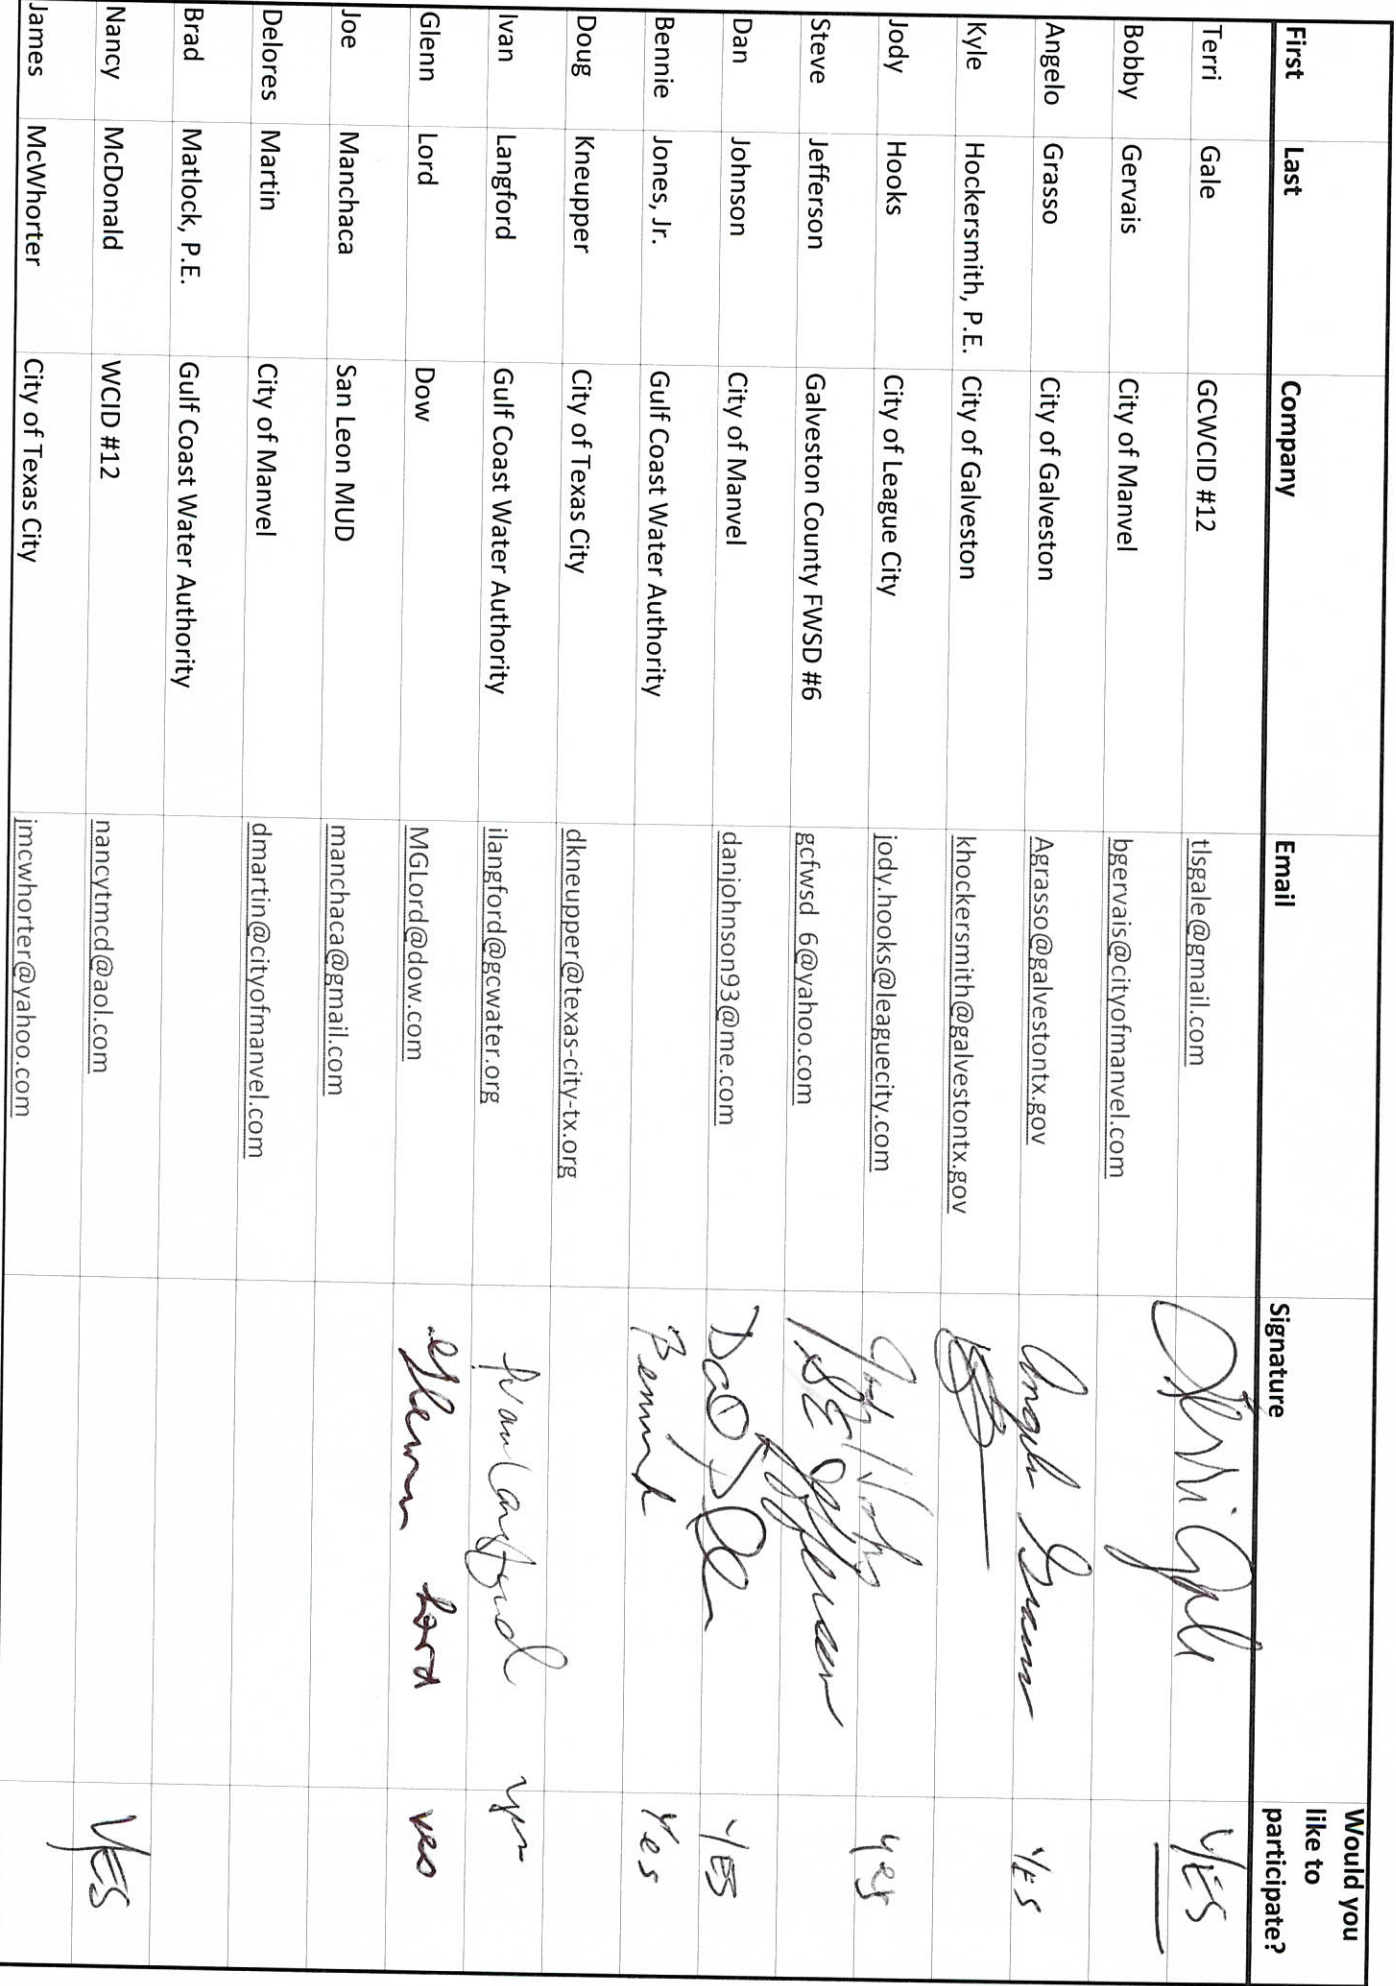 First Last Company Email Signature Would you like to participate?
Terri Gale GCWCID #12 tlsgale@gmail.com Terri Gale YES
Bobby Gervais City of Manvel bgervais@cityofmanvel.com
Angelo Grasso City of Galveston Agrasso@galvestontx.gov Angelo Grasso YES
Kyle Hockersmith, P.E. City of Galveston khockersmith@galvestontx.gov
Jody Hooks City of League City jody.hooks@leaguecity.com Jody Hooks yes
Steve Jefferson Galveston County FWSD #6 gcfwsd_6@yahoo.com Jefferson
Dan Johnson City of Manvel danjohnson93@me.com YES
Bennie Jones, Jr. Gulf Coast Water Authority Yes
Doug Kneupper City of Texas City dkneupper@texas-city-tx.org
Ivan Langford Gulf Coast Water Authority ilangford@gcwater.org Ivan Langford yes
Glenn Lord Dow MGLord@dow.com Glenn Lord yes
Joe Manchaca San Leon MUD manchaca@gmail.com
Delores Martin City of Manvel dmartin@cityofmanvel.com
Brad Matlock, P.E. Gulf Coast Water Authority
Nancy McDonald WCID #12 nancytmcd@aol.com YES
James McWhorter City of Texas City jmcwhorter@yahoo.com